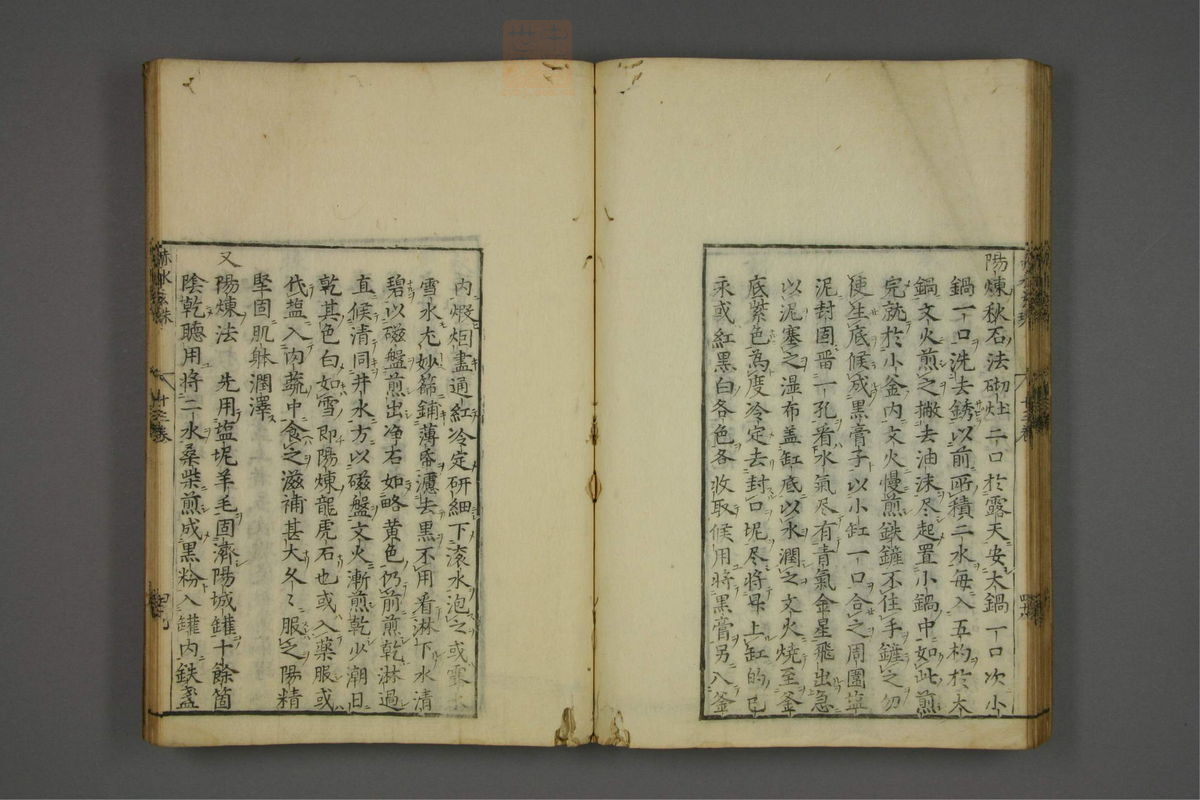 陽煉秋石法砌灶二口於露天安大鍋一口次小
鍋一口洗去銹以前所積二水每入五杓於大
鍋文火煎之撇去油沫尽起置小鍋中如此煎
完就於小釜内文火慢煎鉄鏟不住手鏟之勿
使生底候成黒膏子以小缸一口合之周圍塩
泥封固晋一孔看水氣尽有青氣金星飛出急
以泥塞之湿布盖缸底以水潤之文火焼至釜
底紫色為度冷定去封口坭尽將昇上缸的已
汞或紅黒白各色各收取候用將黒膏另入釜
内煅炬畫通紅冷定研細下滚水泡之或雪
雪水尤妙篩鋪薄帋濾去黒不用看淋下水清
碧以磁盤煎出净石如略黄色仍前煎乾淋過
直候清同井水方以磁盤文火漸煎乾少潮日
乾其色白如雪即陽煉龍虎石也或入藥服或
代塩入肉蔬中食之滋補甚大久〻服之陽精
堅固肌躰潤澤
又陽煉法 先用塩坭羊毛固濟陽城罐十餘箇
陰乾聴用將二水桑柴煎成黒粉入罐内鉄盞
赤水玄珠 十三卷